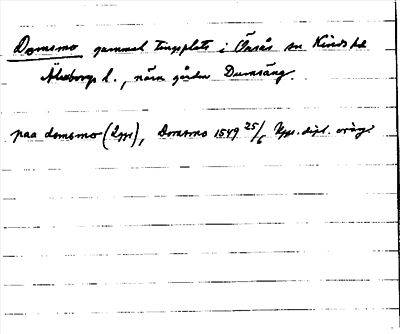 Domsmo gammal tingsplats i Örsås sn Kinds hd
Älvsborgs l., nära gården Dumsäng.
paa domsmo (2ggr), Domsmo 1549 25/6 Upps. dipl. orig.